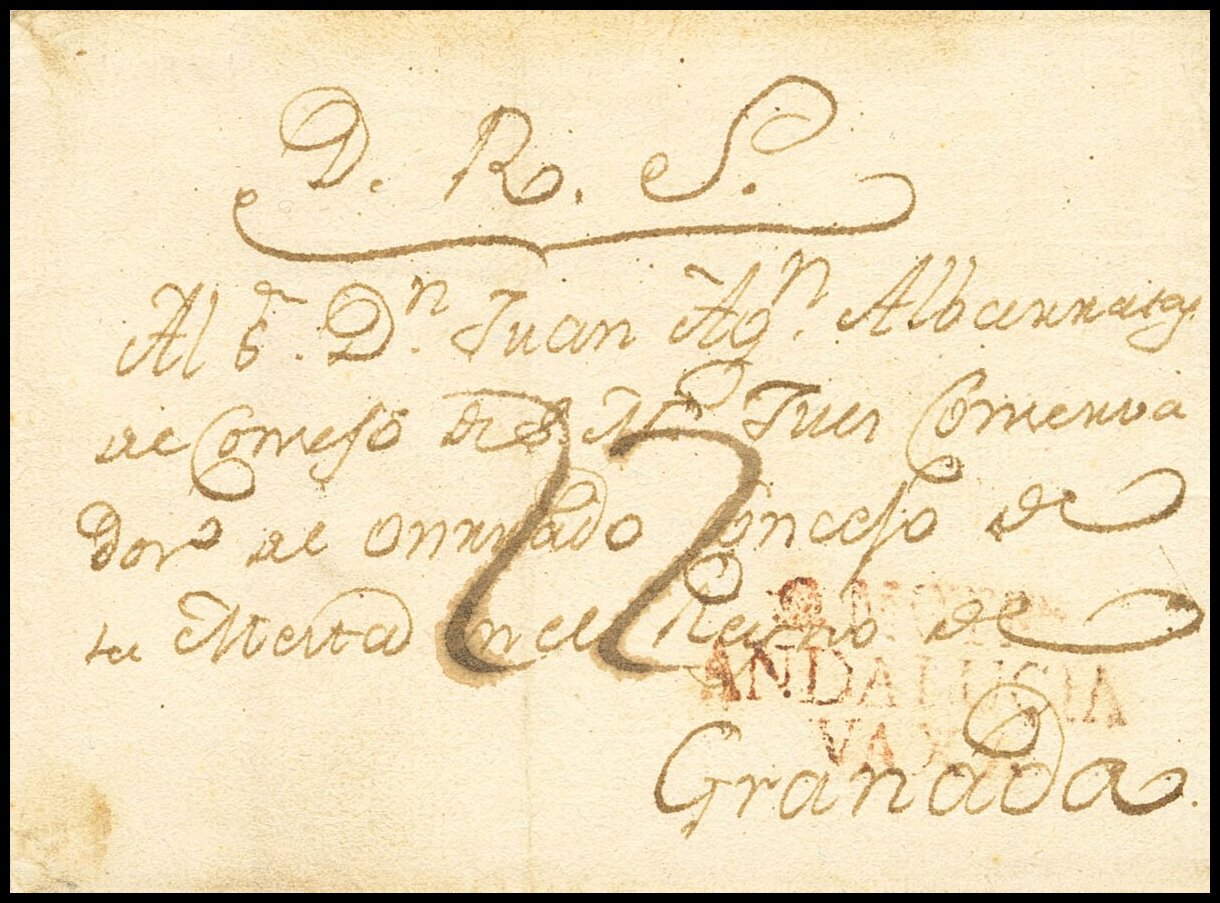 D. R. S.
Al Sr. Dn. Juan Agn.
del Consejo de S. M. Juez Conserva
dor del Onrrado Concejo de
la Mesta en el Reyno de
Granada.
22
ANDALUCIA
VAXA